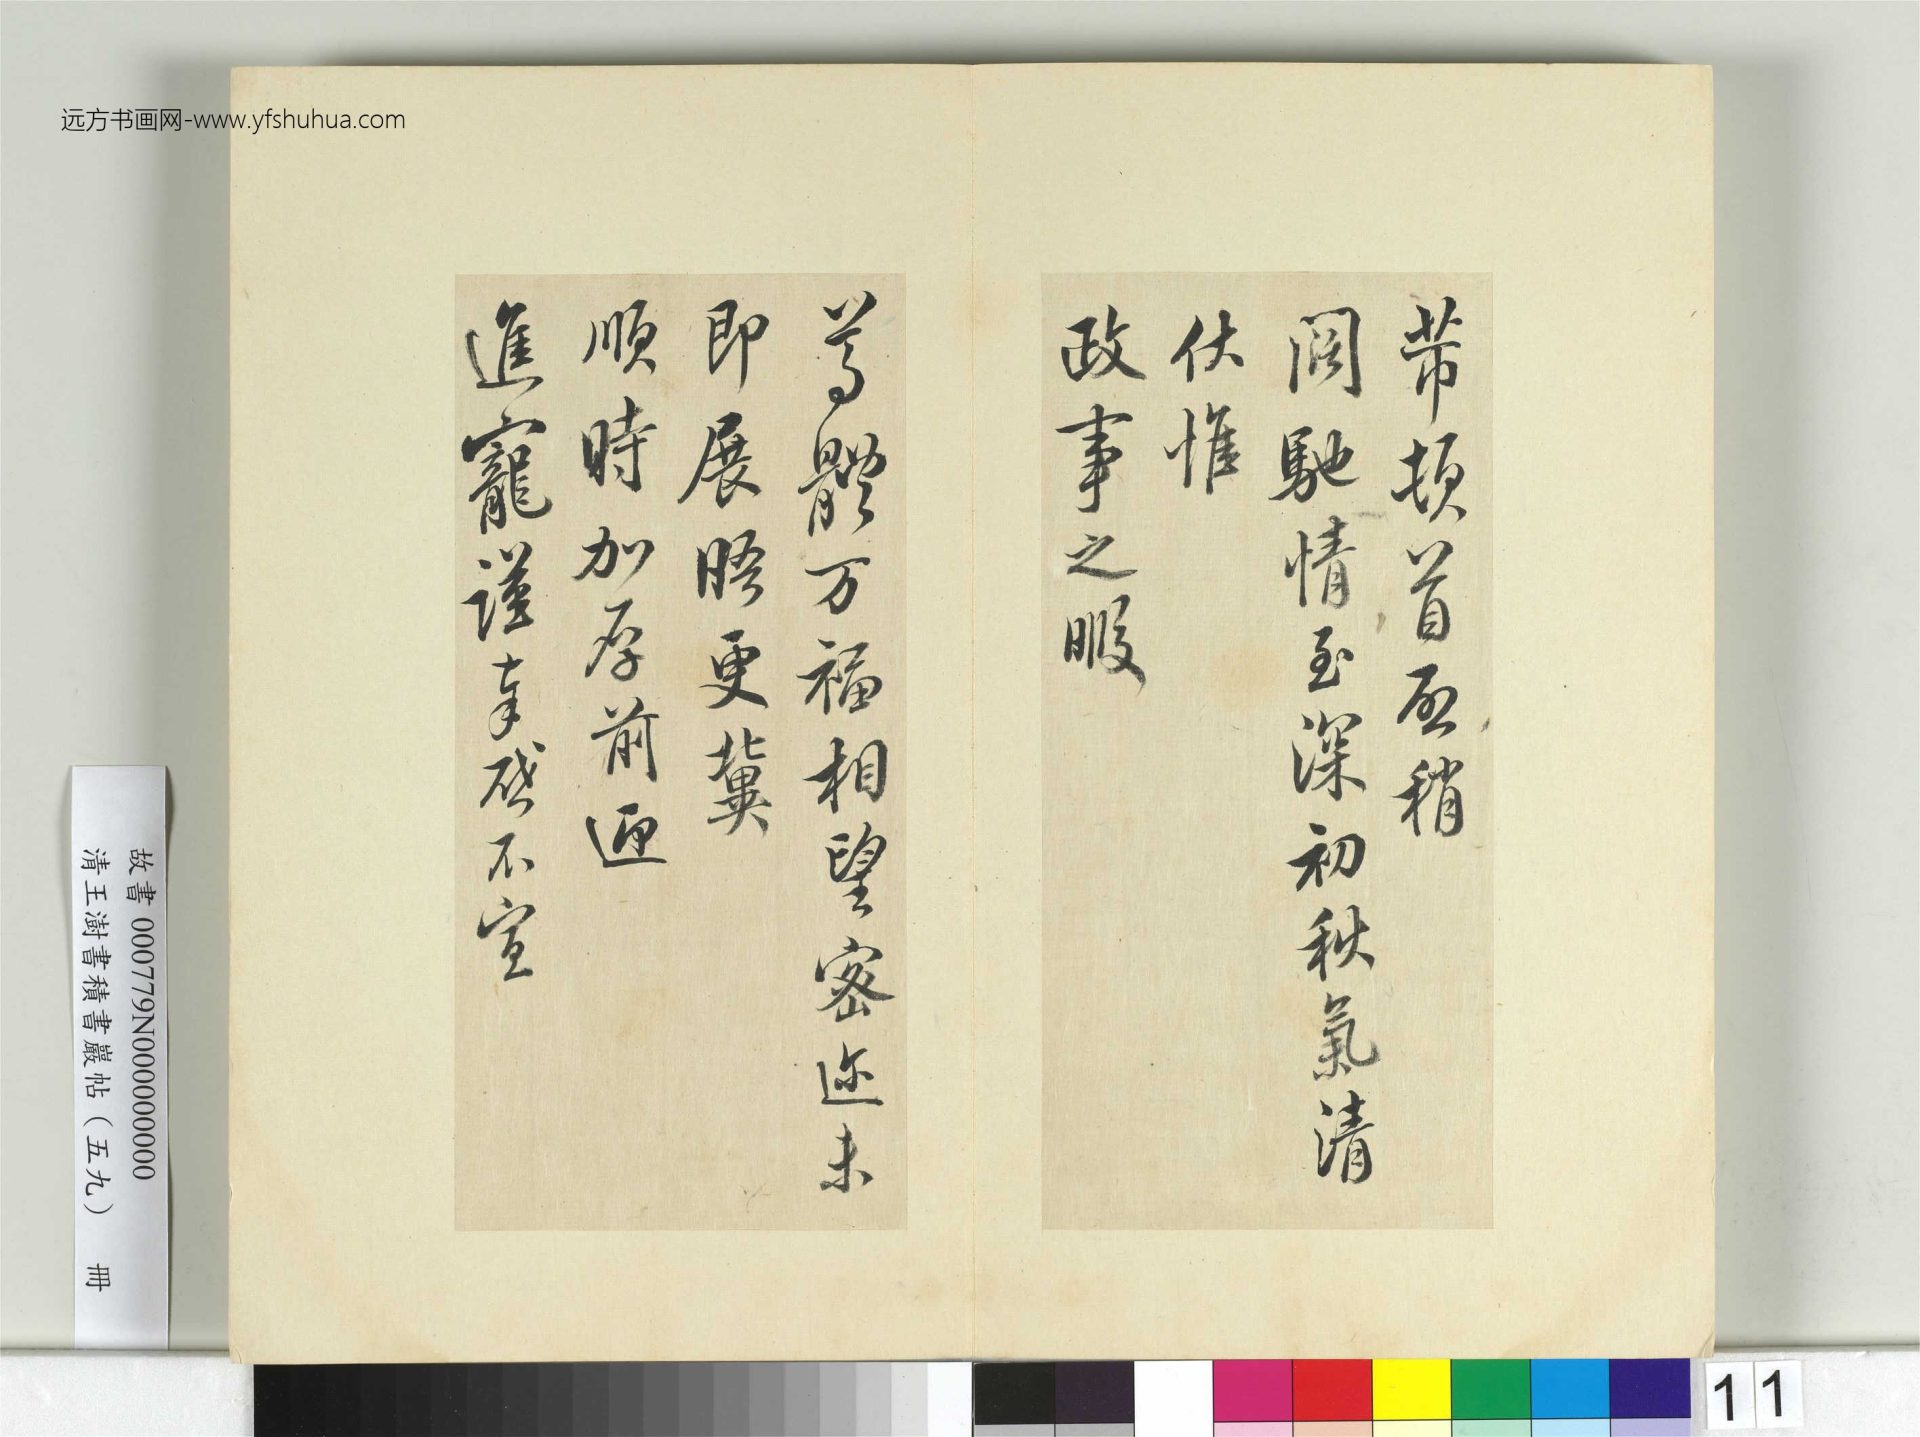 远方书画网-www.yfshuhua.com
芾頓首啓稍
闊馳情至深初秋氣清
伏惟
政事之暇
尊體万福相望密迩未
即展晤更冀
順時加厚前迎
進寵謹奉啓不宣
故書 000779N000000000
清王澍書積書巖帖（五九） 冊
11